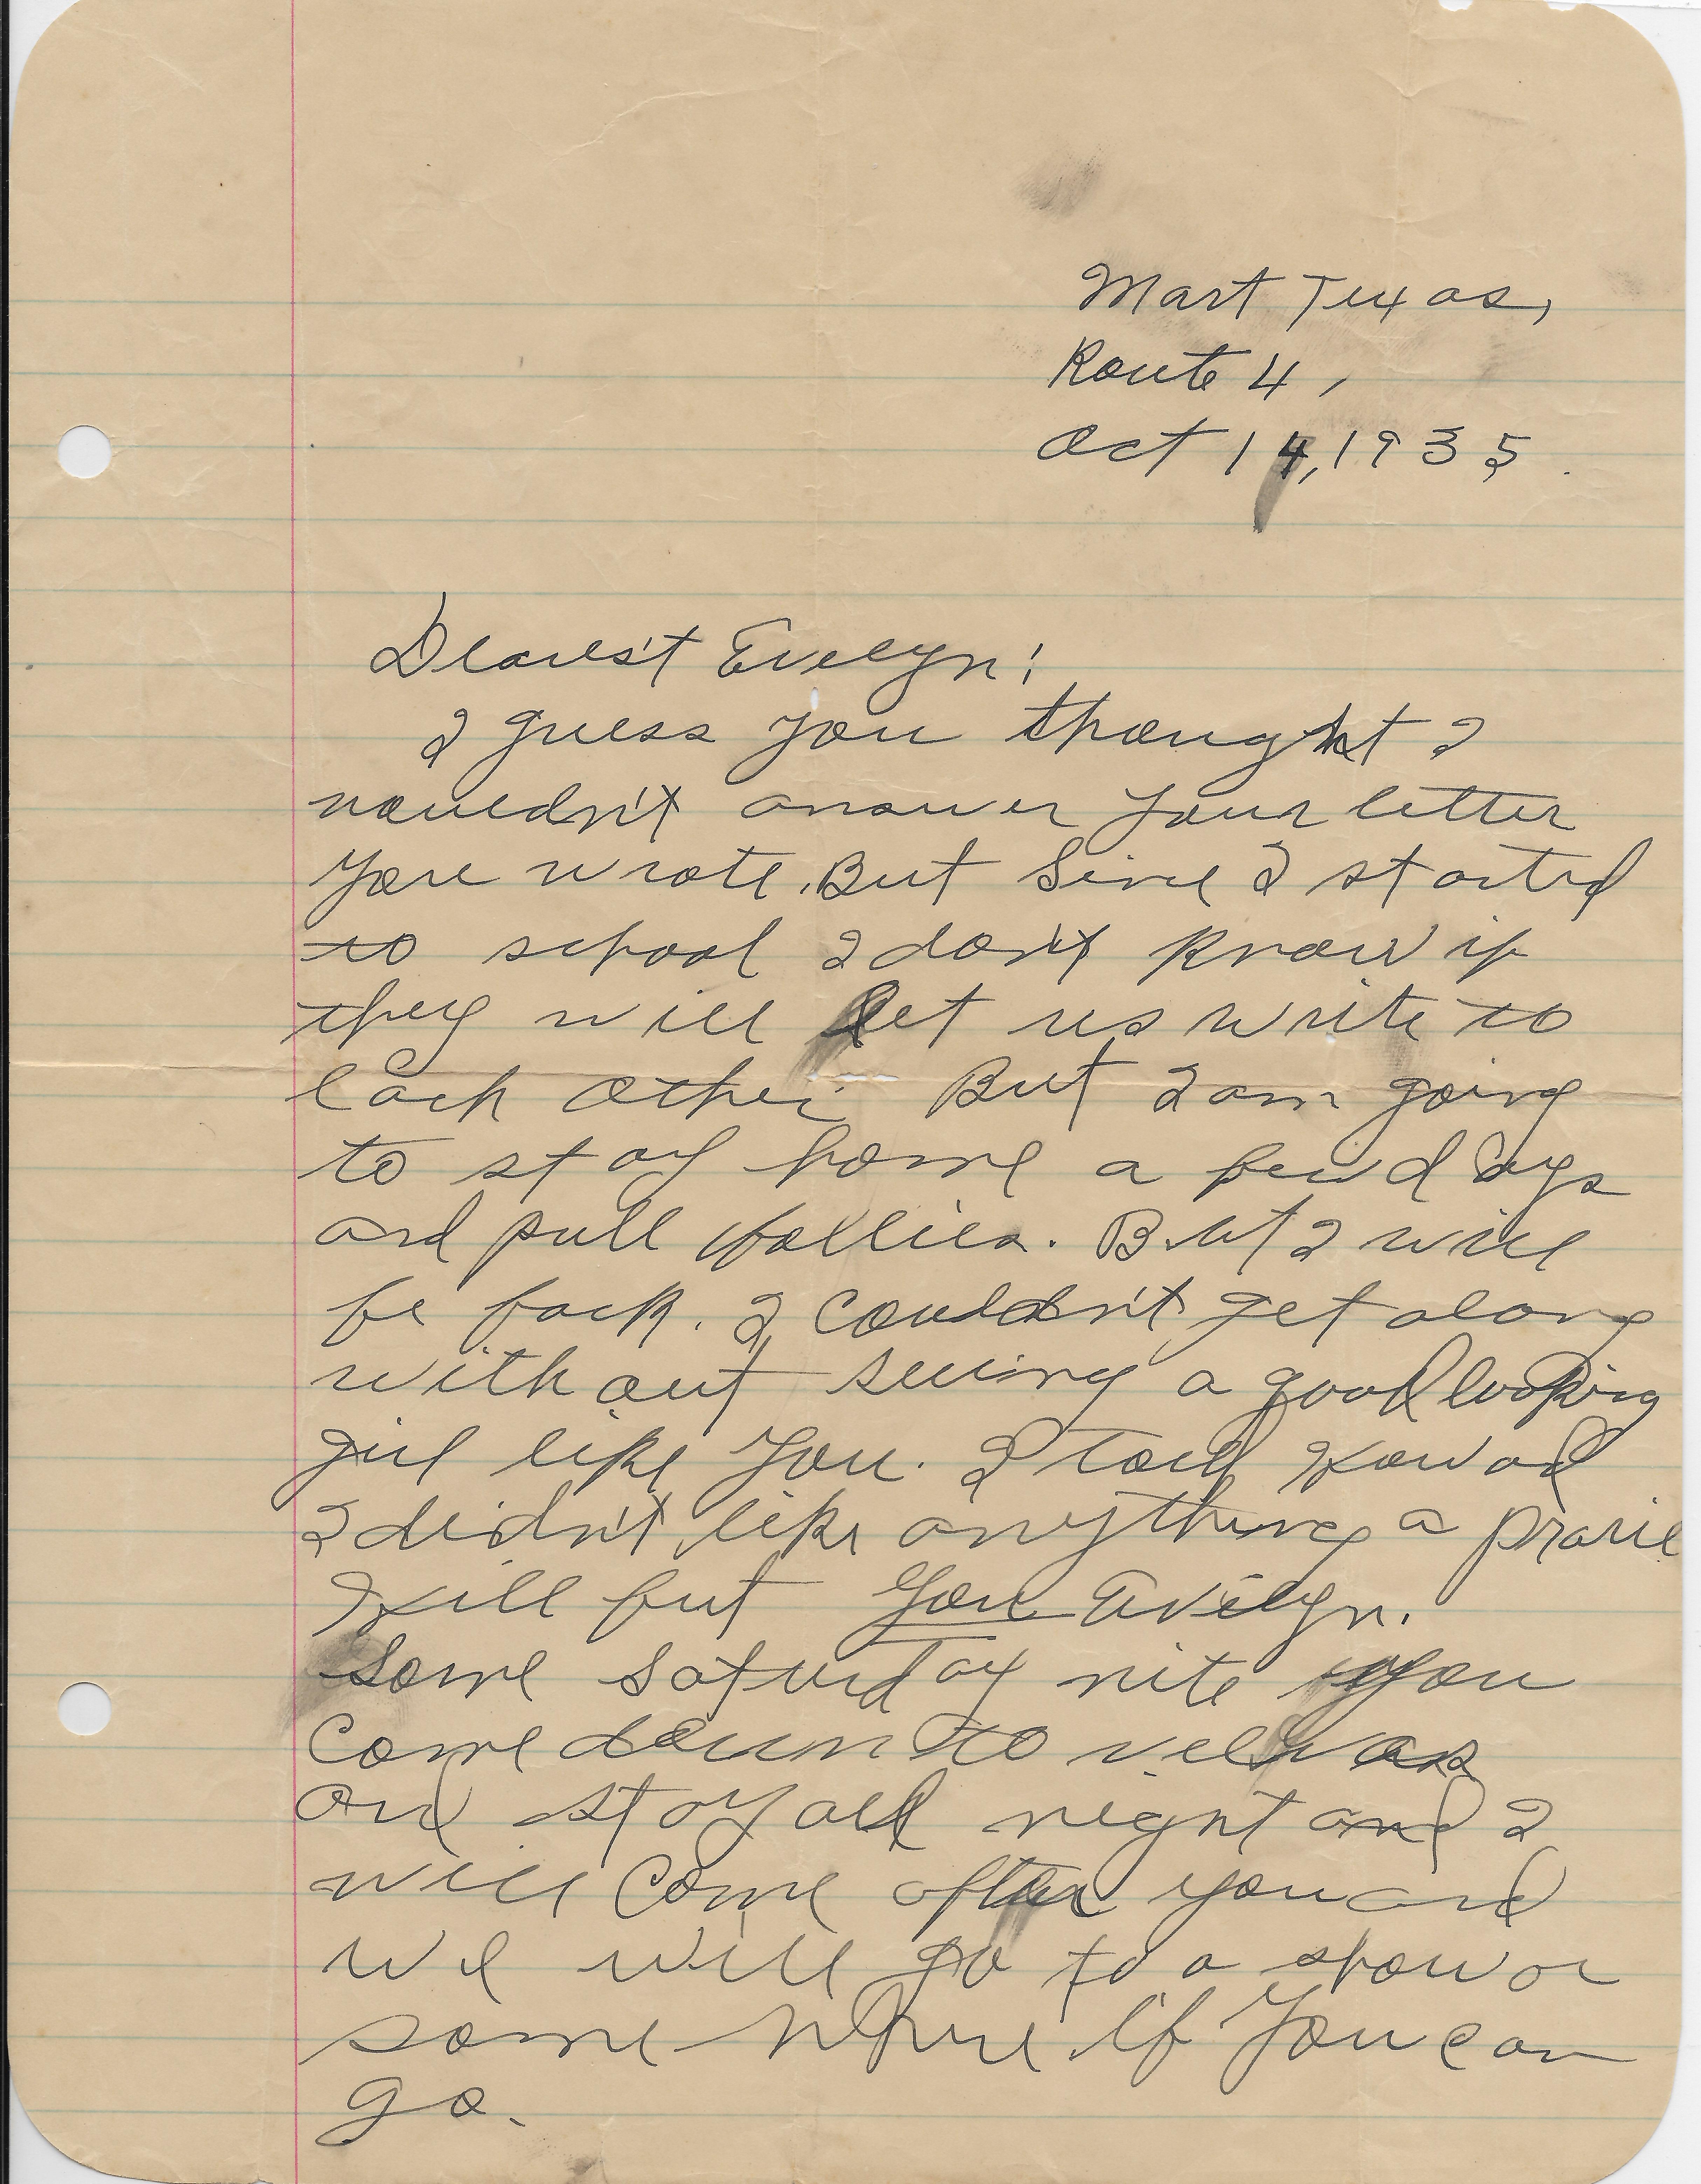 Mart Texas,
Route 4,
Oct 14, 1935.
Dearest Evelyn:
I guess you thought I
wouldn't answer your letter
you wrote. But Since I started
to school I don't know if
they will let us write to
each other. But I am going
to stay home a few days
and pull bollies. But I will
be back. I couldn't get along
without seeing a good looking
girl like you. I told Howard
I didn't like anything a prarie
Hill but You Evelyn.
Some Saturday nite you
Come down to
and stay all night and I
will Come after you and
we will go to a show or
some where if you can
go.